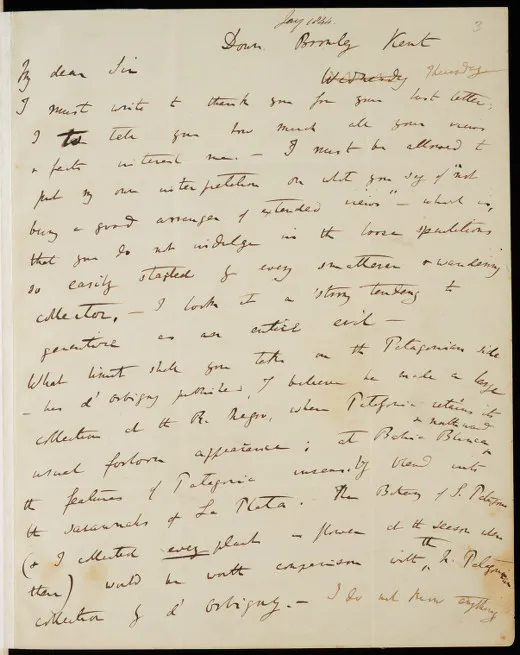 Jany 1844.
3
Down. Bromley Kent
My dear Sir Wednesday Thursday
I must write to thank you for your last letter;
I to tell you how much all your views
& facts interest me. — I must be allowed to
put my own interpretation on what you say of "not
being a good arranger of extended views" — which is,
that you do not indulge in the loose speculations
so easily started by every smatterer & wandering
collector. — I look at a strong tendency to
generalise as an entire evil —
What limit shall you take on the Patagonian side
— has d'Orbigny published, I believe he made a large
collection at the R. Negro, where Patagonia retains its
usual forlorn appearance; at Bahia Blanca & northward
the features of Patagonia insensibly blend into
the savannahs of La Plata. The Botany of S. Patagonia
(& I collected every plant in flower at the season when
there) would be worth comparison with the N. Patagonian
collection by d'Orbigny. — I do not know anything